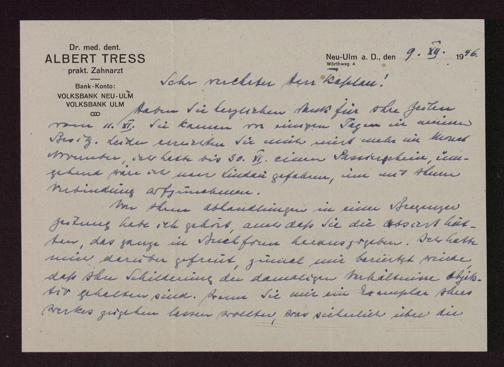 Dr. med. dent.
ALBERT TRESS
prakt. Zahnarzt
Bank-Konto:
VOLKSBANK NEU-ULM
VOLKSBANK ULM
Neu-Ulm a. D., den 9. XII. 1946.
Wörthweg 4
Sehr verehrter Herr Kaplan!
Haben Sie herzlichen Dank für Ihre Zeilen
vom 11. XI. Sie kamen vor einigen Tagen in meinen
Besitz. Leider erreichten Sie mich nicht mehr im Monat
November, ich hatte bis 30. XI. einen Passierschein, um-
gehend wäre ich nach Lindau gefahren, um mit Ihnen
Verbindung aufzunehmen.
Von Ihren Abhandlungen in einer Bregenzer
Zeitung habe ich gehört, auch daß Sie die Absicht hät-
ten, das ganze in Buchform herauszugeben. Ich hatte
mich darüber gefreut, zumal mir berichtet wurde
daß Ihre Schilderung der damaligen Verhältnisse objek-
tiv gehalten sind. Wenn Sie mir ein Exemplar Ihres
Werkes zugehen lassen wollten, was sicherlich über die